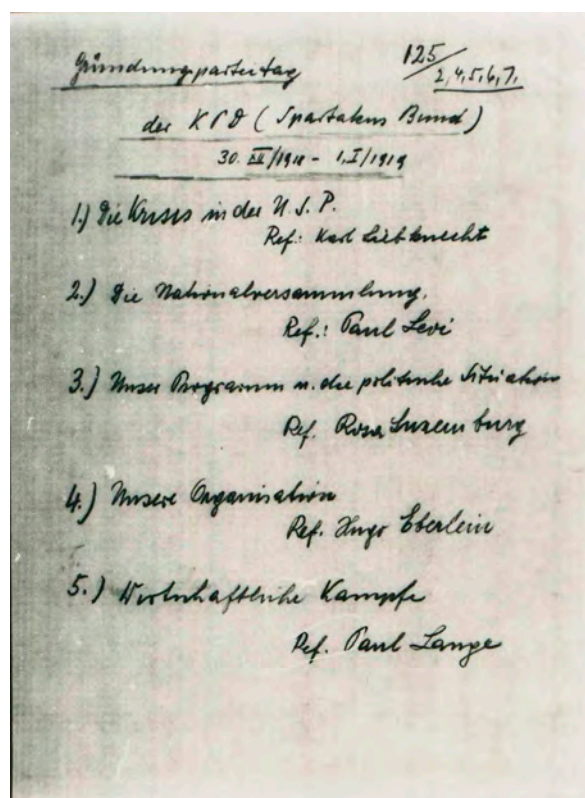 Gründungsparteitag
125/2,4,5,6,7,
der KPD (Spartakus Bund)
30. XII/1918 - 1, I/1919
1.) Die Krisis in der U. S. P.
Ref.: Karl Liebknecht
2.) Die Nationalversammlung.
Ref.: Paul Levi
3.) Unser Programm u. die politische Situation
Ref. Rosa Luxemburg
4.) Unsere Organisation
Ref. Hugo Eberlein
5.) Wirtschaftliche Kämpfe
Ref. Paul Lange